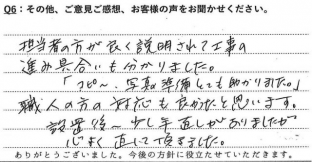 Q6：その他、ご意見ご感想、お客様の声をお聞かせください。
担当者の方が良く説明されて工事の
進み具合いも分かりました。
「コピー、写真準備しても助かりました。」
職人の方の対応も良かったと思います。
設置後〜少し手直しがありましたが
心よく直して頂きました。
ありがとうございました。今後の方針に役立たせていただきます。